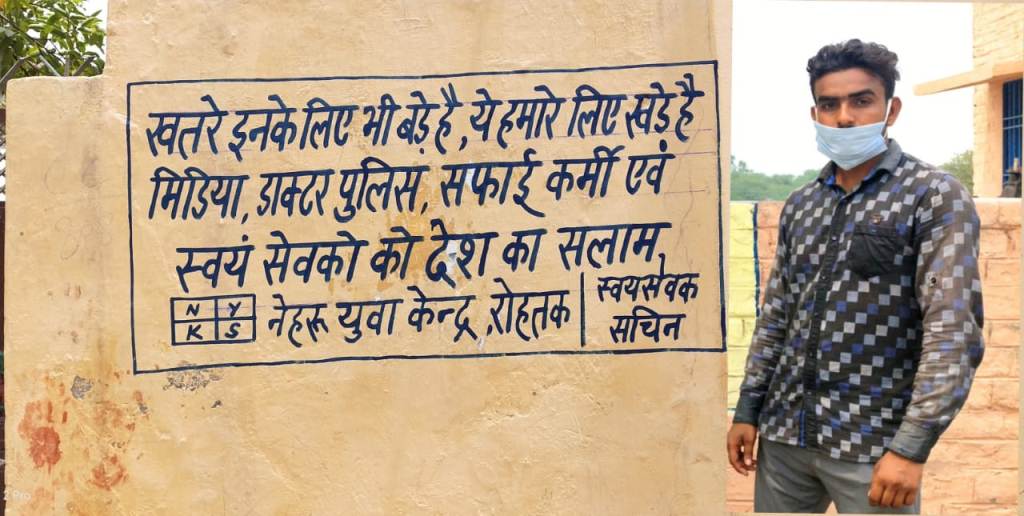 खतरे इनके लिए भी बड़े है, ये हमारे लिए खड़े है
मिडिया, डाक्टर पुलिस, सफाई कर्मी एवं
स्वयं सेवको को देश का सलाम
N Y
K S
नेहरू युवा केन्द्र, रोहतक
स्वयसेवक
सचिन
2 Pro